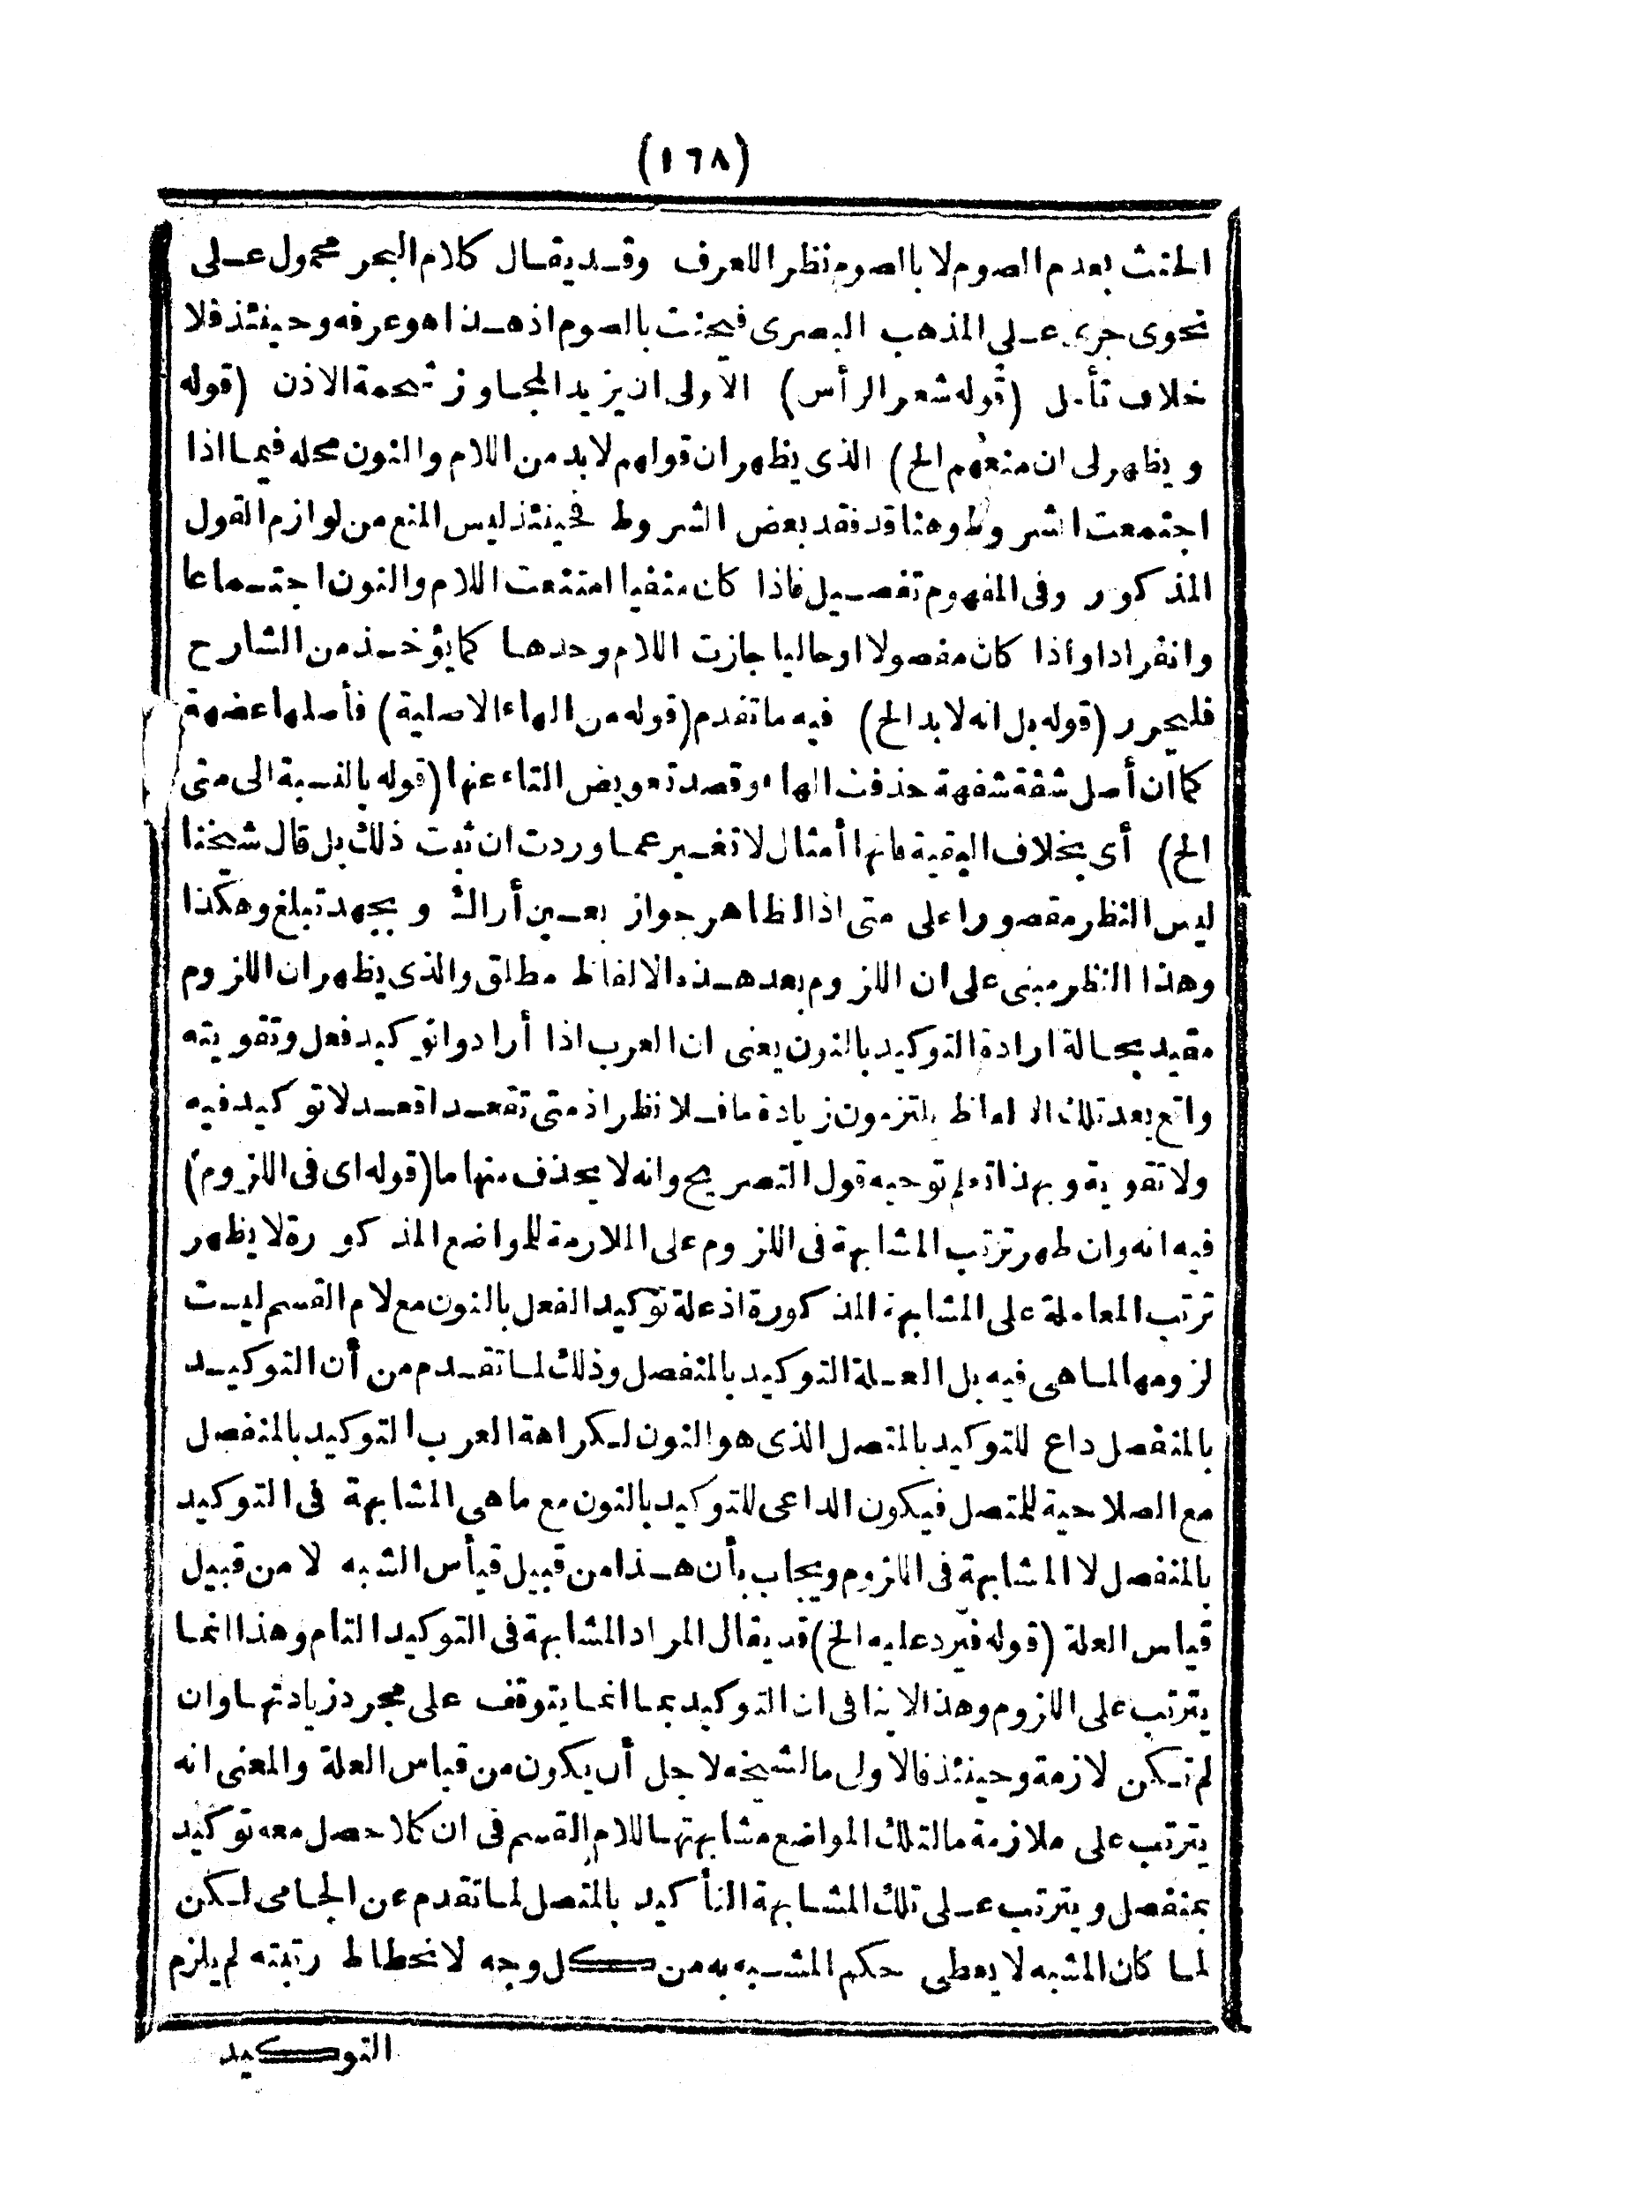 (١٦٨)
الحنث بعدم الصوم لا بالصوم نظرا للعرف وقد يقال كلام البحر محمول على
نحوى جرى على المذهب البصرى فيحنث بالصوم اذ هذا هو عرفه وحينئذ فلا
خلاف تأمل (قوله شعر الرأس) الاولى ان يزيد المجاوز شحمة الاذن (قوله
ويظهر لى ان منعهم الخ) الذى يظهر ان قولهم لا بد من اللام والنون محله فيما اذا
اجتمعت الشروط وهنا قد فقد بعض الشروط فحينئذ ليس المنع من لوازم القول
المذكور وفى المفهوم تفصيل فاذا كان منفيا امتنعت اللام والنون اجتماعا
وانفرادا واذا كان مفصولا او حاليا جازت اللام وحدها كما يؤخذ من الشارح
فليحرر (قوله بل انه لا بد الخ) فيه ما تقدم (قوله من الهاء الاصلية) فأصلها عضهة
كما ان أصل شفة شفهة حذفت الهاء وقصد تعويض التاء عنها (قوله بالنسبة الى متى
الخ) أى بخلاف البقية فانها أمثال لا تغير عما وردت ان ثبت ذلك بل قال شيخنا
ليس النظر مقصورا على متى اذ الظاهر جواز بعين أراك وبجهد تبلغ وهكذا
وهذا النظر مبنى على ان اللزوم بعد هذه الالفاظ مطلق والذى يظهر ان اللزوم
مقيد بحالة ارادة التوكيد بالنون يعنى ان العرب اذا أرادوا توكيد فعل وتقويته
واقع بعد تلك الالفاظ يلتزمون زيادة ما فلا نظر اذ متى تقعد اقعد لا توكيد فيه
ولا تقوية وبهذا تعلم توجيه قول التصريح وانه لا يحذف منها ما (قوله اى فى اللزوم)
فيه انه وان ظهر ترتب المشابهة فى اللزوم على الملازمة للمواضع المذكورة لا يظهر
ترتب المعاملة على المشابهة المذكورة اذ علة توكيد الفعل بالنون مع لام القسم ليست
لزومها لما هى فيه بل العلة التوكيد بالمنفصل وذلك لما تقدم من أن التوكيد
بالمنفصل داع للتوكيد بالمتصل الذى هو النون لكراهة العرب التوكيد بالمنفصل
مع الصلاحية للمتصل فيكون الداعى للتوكيد بالنون مع ما هى المشابهة فى التوكيد
بالمنفصل لا المشابهة فى اللزوم ويجاب بأن هذا من قبيل قيأس الشبه لا من قبيل
قياس العلة (قوله فيرد عليه الخ) قد يقال المراد المشابهة فى التوكيد التام وهذا انما
يترتب على اللزوم وهذا لا ينافى ان التوكيد بما انما يتوقف على مجرد زيادتها وان
لم تكن لازمة وحينئذ فالاولى ما لشيخه لاجل أن يكون من قياس العلة والمعنى انه
يترتب على ملازمة ما لتلك المواضع مشابهتها للام القسم فى ان كلا حصل معه توكيد
بمنفصل ويترتب على تلك المشابهة التأكيد بالمتصل لما تقدم عن الجامى لكن
لما كان المشبه لا يعطى حكم المشبه به من كل وجه لانحطاط رتبته لم يلزم
التوكيد